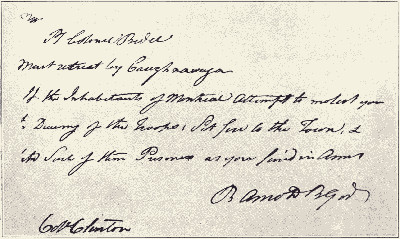 Colonel Bedel
Must retreat by Caughnawaga
If the Inhabitants of Montreal Attempt to molest you
Drawing of the Troops, Set fire to the Town, &
Such of them Prisoners as you find in Arms
B Arnold B Gen
Col Clinton